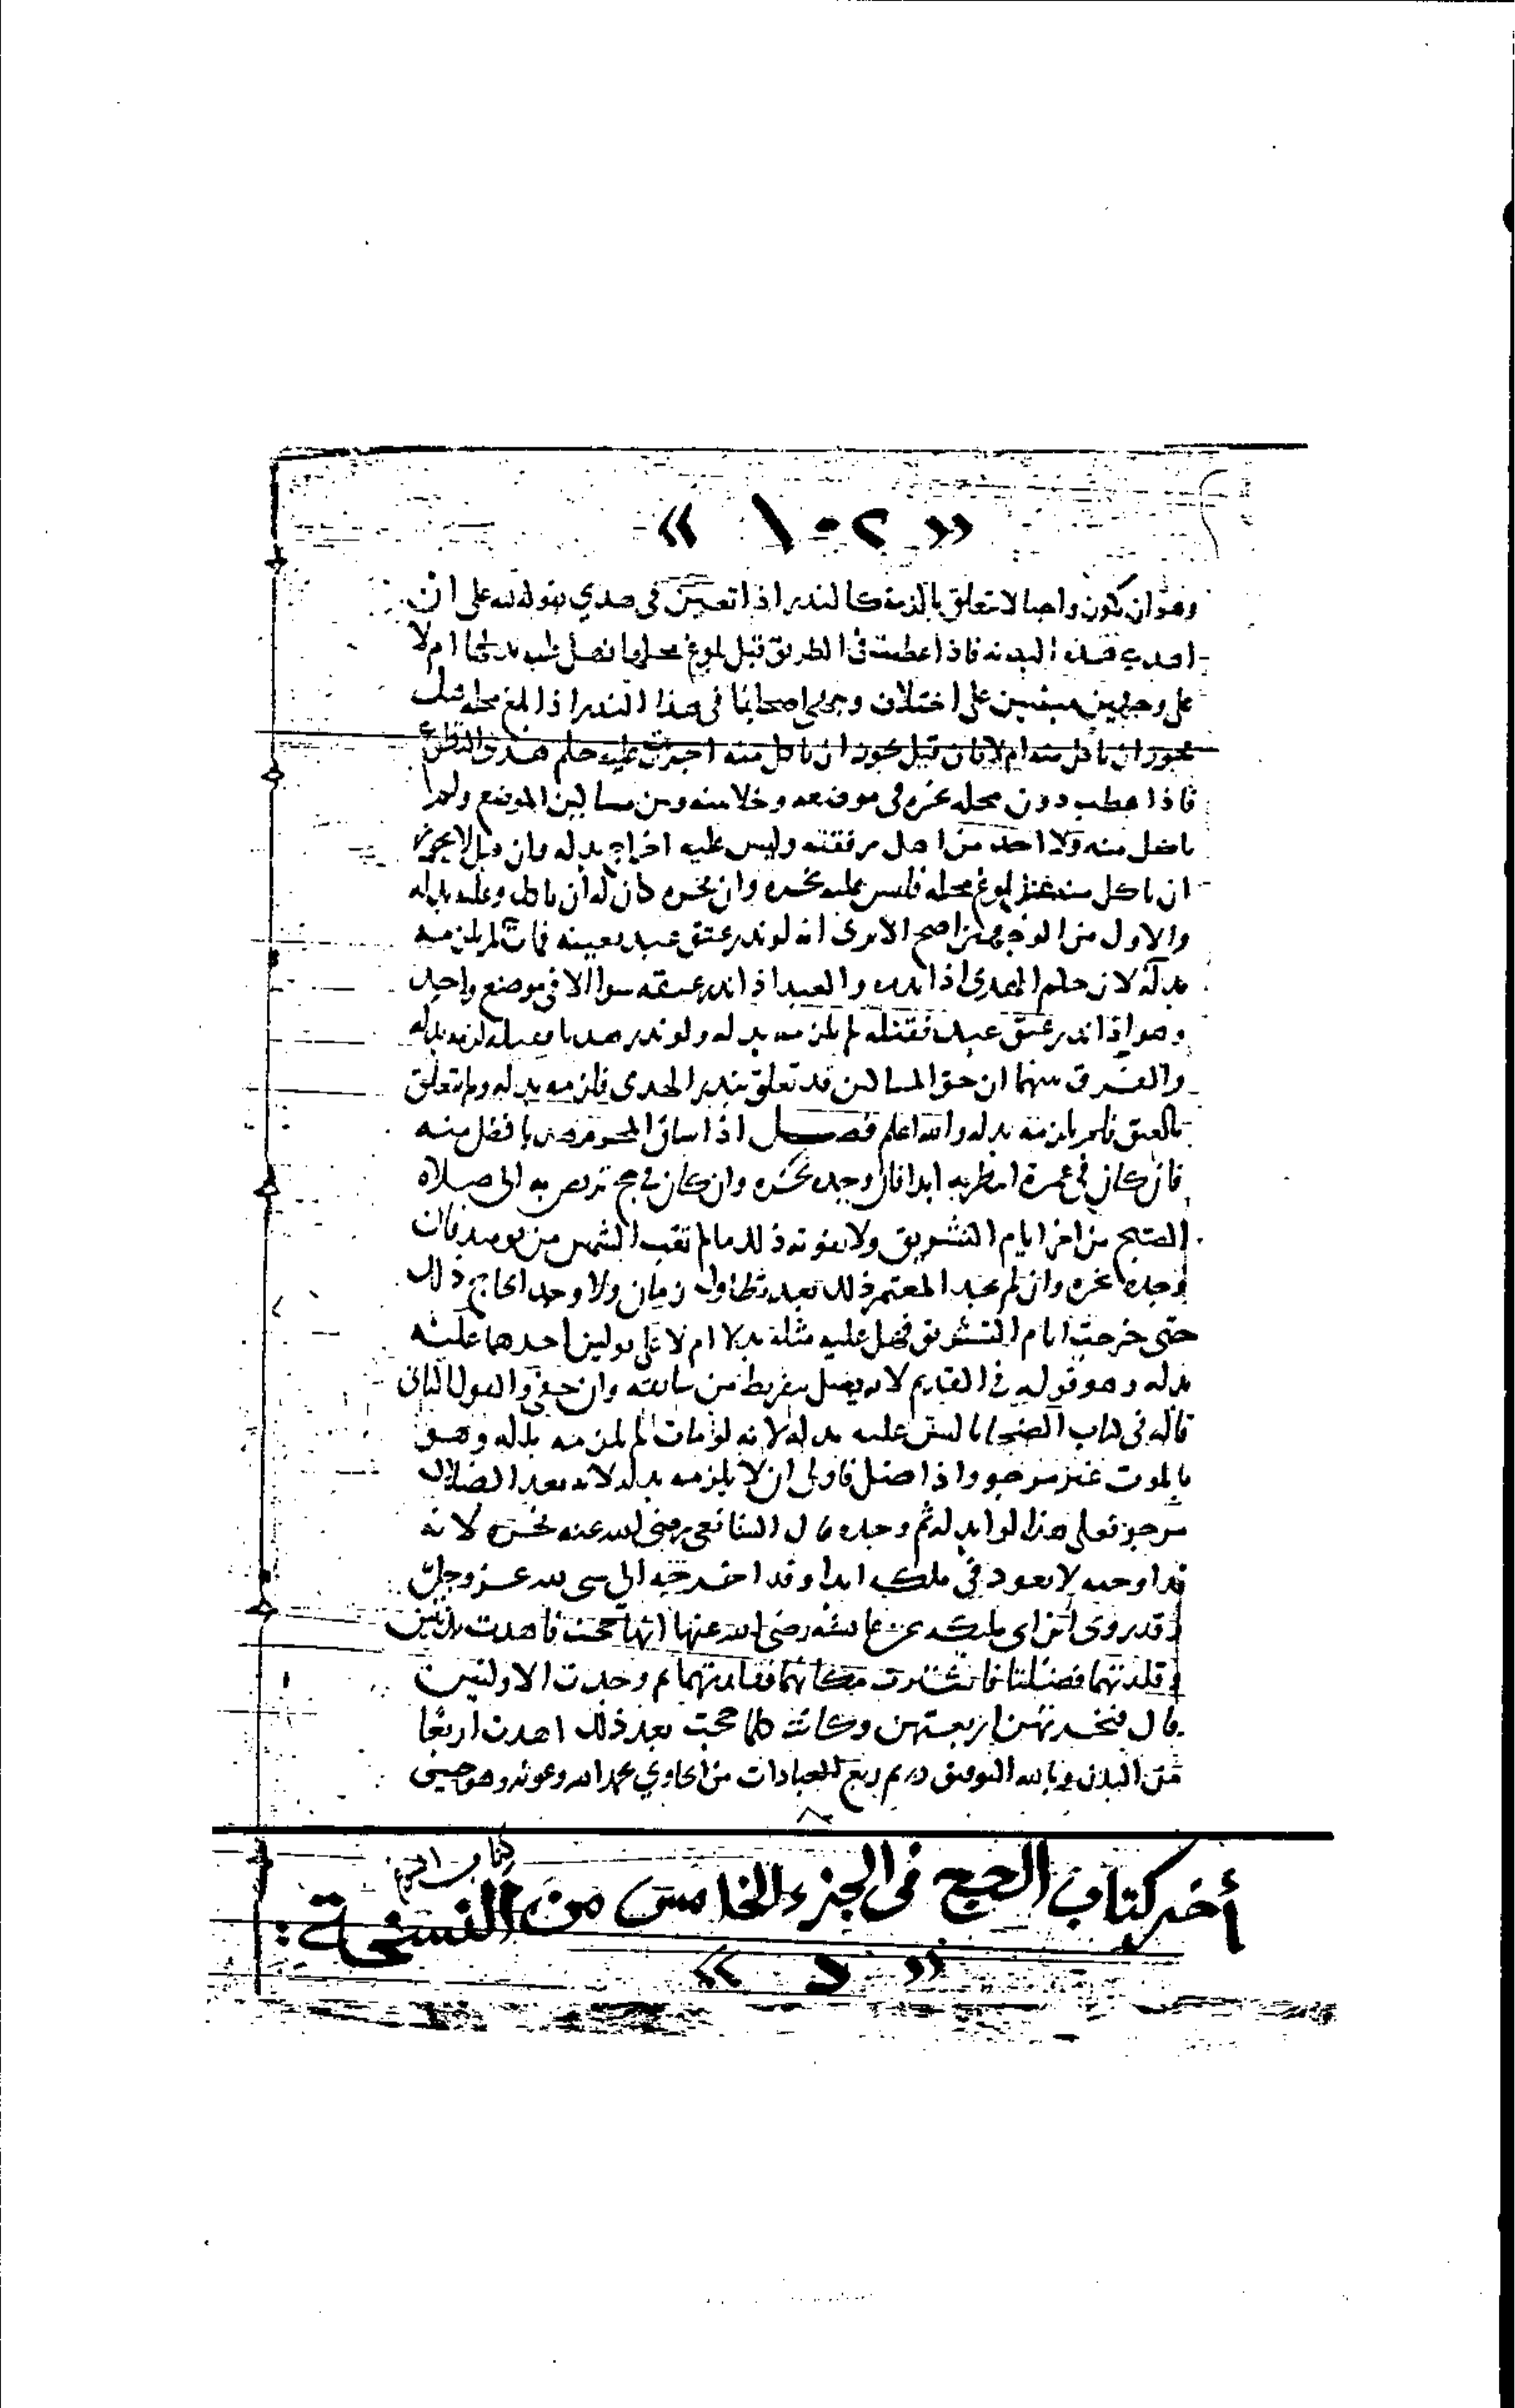 « ١٠٢ »
وهو ان يكون واجبا لا تعلق بالذمة كالنذر اذا تعين في هدي بقوله لله علي ان
اهدي هذه البدنة فاذا عطبت في الطريق قبل بلوغ محلها فهل عليه بدلها ام لا
على وجهين مبنيين على اختلاف وجهي اصحابنا في هذا النذر اذا بلغ محله هل
يجوز ان ياكل منه ام لا فان قيل يجوز ان ياكل منه اجريت عليه حكم هدي التطوع
فاذا عطب دون محله نحره في موضعه وخلا بينه وبين مساكين الموضع ولم
ياكل منه ولا احد من اهل رفقته وليس عليه اخراج بدله وان قيل لا يجوز
ان ياكل منه عند بلوغ محله فليس عليه نحره وان نحره كان له ان ياكل وعليه بدله
والاول من الوجهين اصح الا ترى انه لو نذر عتق عبد بعينه فمات لم يلزمه
بدله لان حكم الهدي اذا نذره والعبد اذا نذر عتقه سوا الا في موضع واحد
وهو اذا نذر عتق عبد فقتله لم يلزمه بدله ولو نذر هديا فقتله لزمه بدله
والفرق بينهما ان حق المساكين قد تعلق بنذر الهدي فلزمه بدله ولم تعلق
بالعتق فلم يلزمه بدله والله اعلم فصل اذا ساق المحرم هديا فضل منه
فان كان في عمرة انتظر به ابدا فان وجده نحره وان كان في حج تربص به الى صلاه
الصبح من اخر ايام التشريق ولا يفوته ذلك ما لم تغب الشمس من يومه فان
وجده نحره وان لم يجد المعتمر ذلك بعد تطاول زمان ولا وجد الحاج ذلك
حتى خرجت ايام التشريق فهل عليه مثله بدلا ام لا على قولين احدهما عليه
بدله وهو قوله في القديم لانه يضل بتفريط من سائقه وان خفي والقول الثاني
قاله في كتاب الضحايا ليس عليه بدله لانه لو مات لم يلزمه بدله وهو
بالموت غير مرجو واذا ضل فاولى ان لا يلزمه بدله لانه بعد الضلال
مرجو فعلى هذا لو ابدله ثم وجده قال الشافعي رضي الله عنه نحره لانه
قد اوجبه لا يعود في ملكه ابدا وقد اخرجه الى شي لله عز وجل
وقد روى ابن ابي مليكه عن عائشه رضي الله عنها انها حجت فاهدت بدنتين
وقلدتهما فضلتا فاشترت مكانهما فقلدتهما ثم وجدت الاولتين
قال فنحرتهن اربعتهن وكانت كلما حجت بعد ذلك اهدت اربعا
من البدن وبالله التوفيق تم ربع العبادات من الحاوي بحمد الله وعونه وهو حسبي
أخر كتاب الحج في الجزء الخامس من النسخة :
« د »